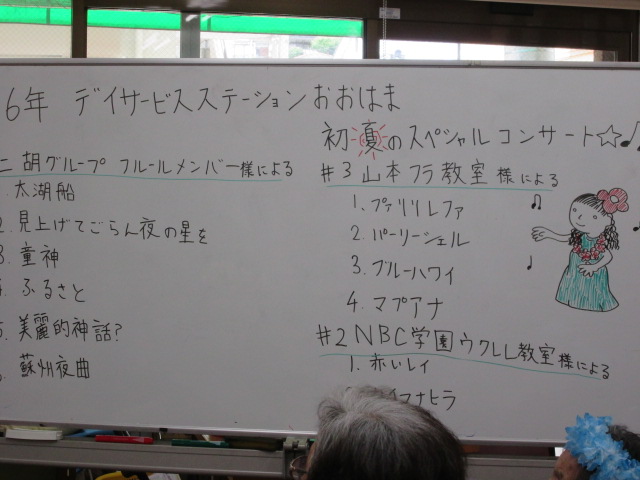 6年 デイサービスステーションおおはま
初夏のスペシャルコンサート☆♪
二胡グループ フルールメンバー様による
1. 太湖船
2. 見上げてごらん夜の星を
3. 童神
4. ふるさと
5. 美麗的神話?
蘇州夜曲
#3 山本フラ教室様による
1. プァリリレファ
2. パーリーシェル
3. ブルーハワイ
4. マプアナ
#2 NBC学園ウクレレ教室様による
1. 赤いレイ
マナヒラ